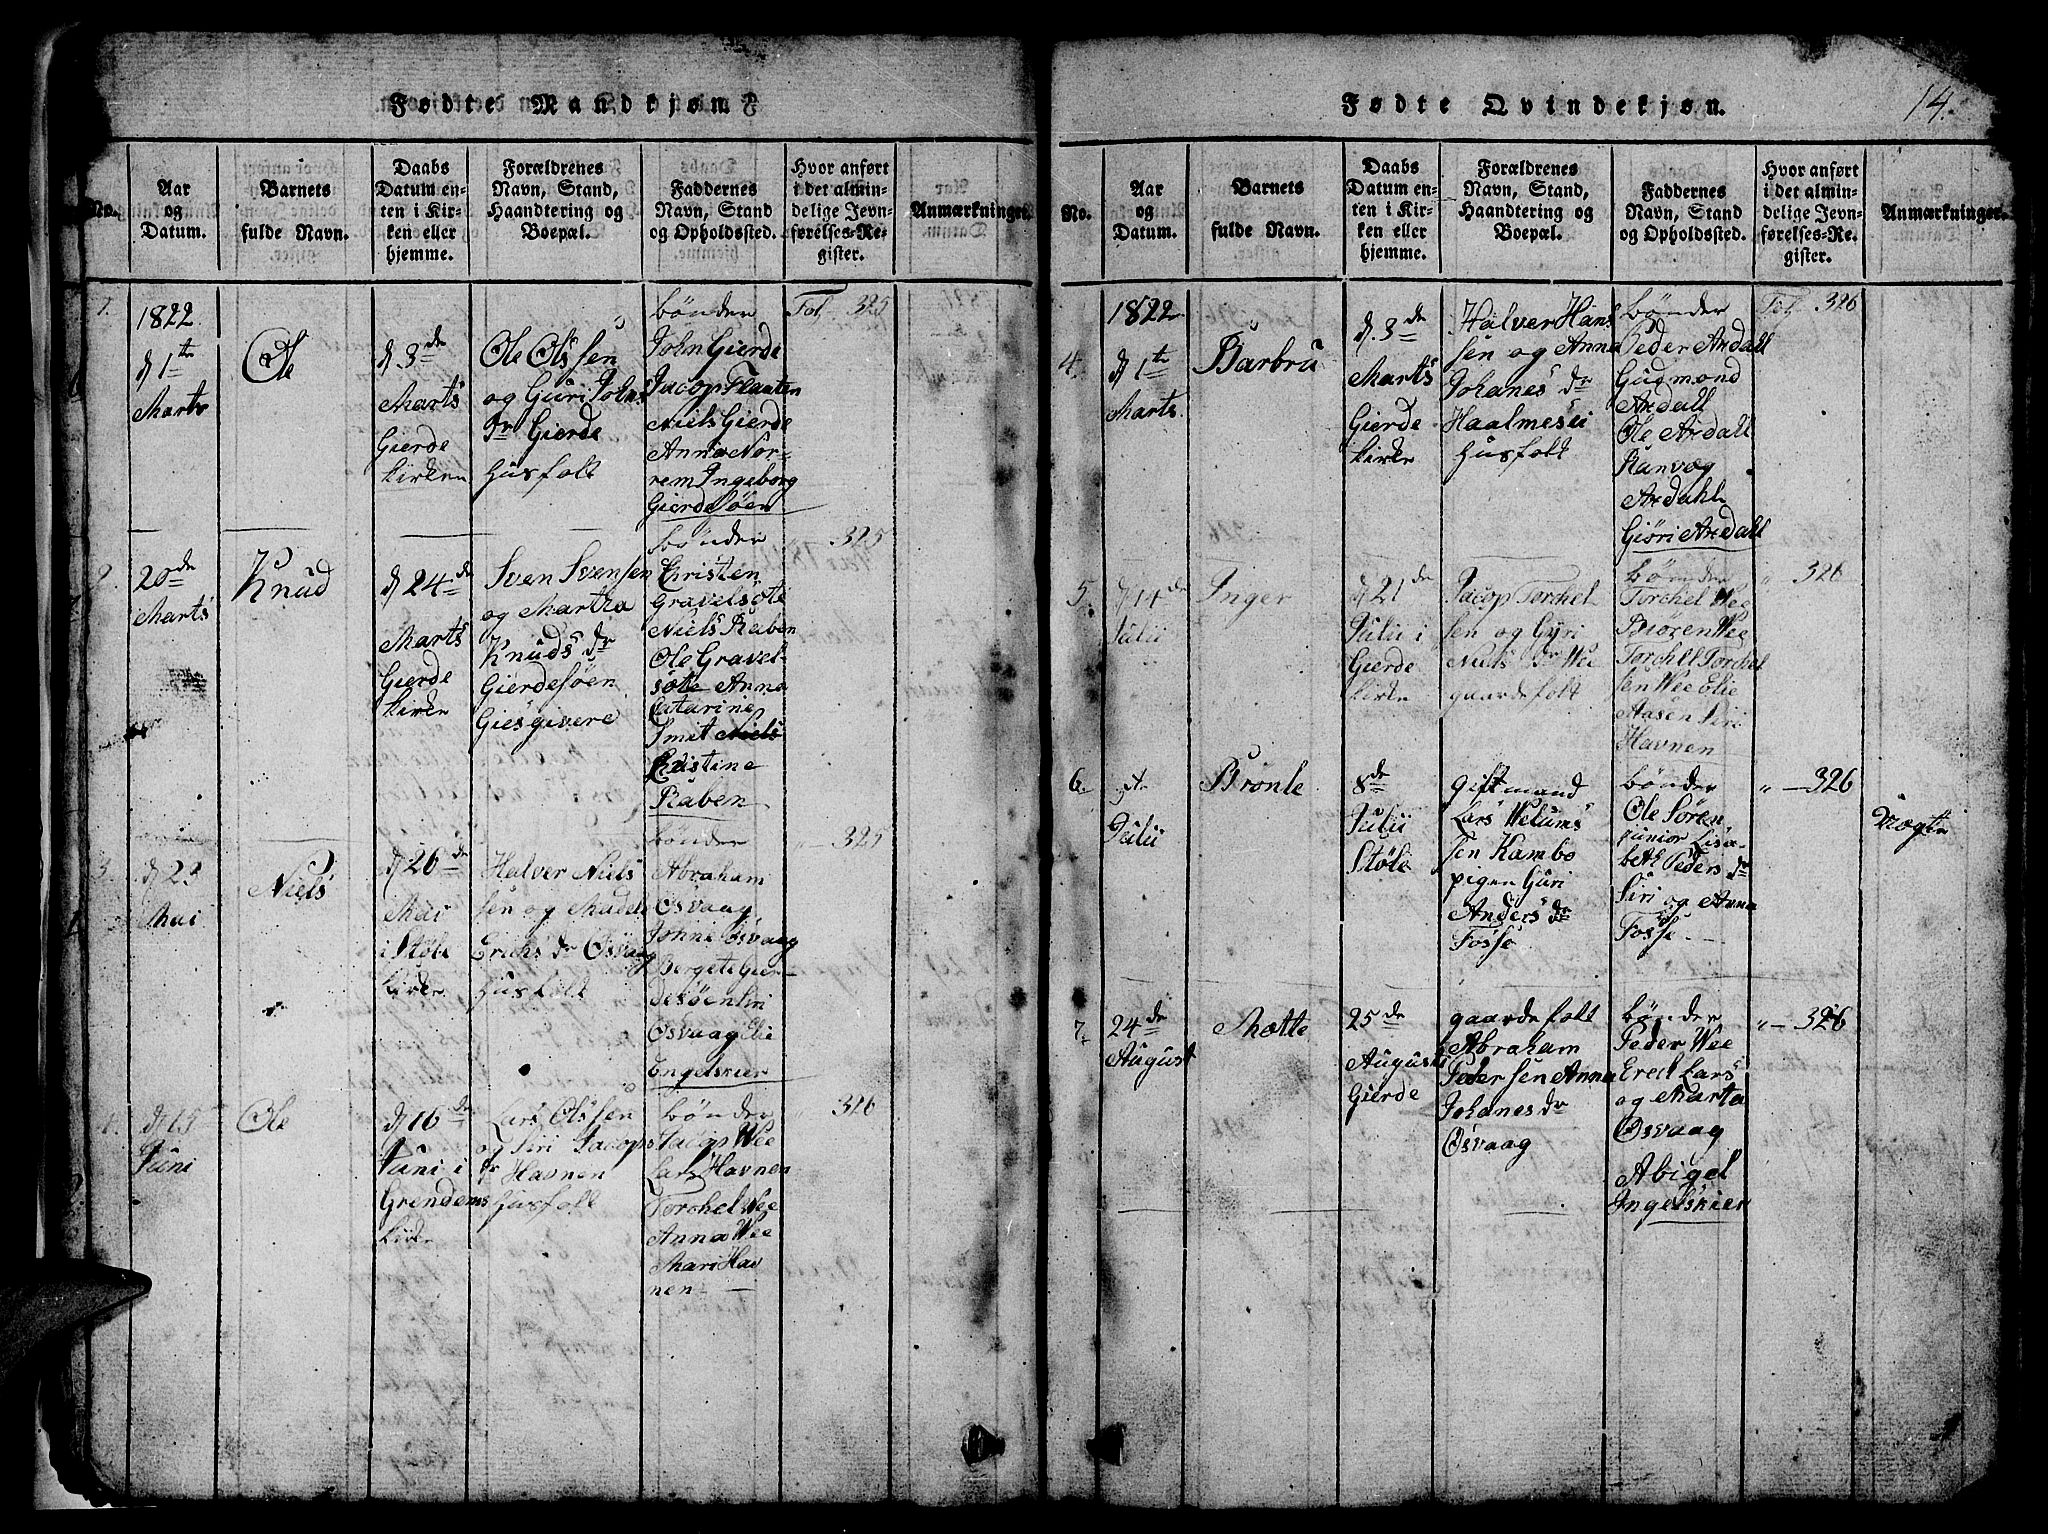 Fødte Mandkjøn
No.
Aar
og
Datum.
Barnets
fulde Navn.
Daabs
Datum en-
ten i Kir-
ken eller
hjemme.
Forældrenes
Navn, Stand,
Haandtering og
Boepæl.
Faddernes
Navn, Stand
og Opholdssted.
Hvor anført
i det almin-
delige Jevn-
førelses-Re-
gister.
Anmærkninger.
1.
1822
d 1te
Marts
Ole
d 3de
Marts
Gierde
kirke
Ole Olssen
og Guri Johns
Dr Gierde
Husfolk
bønder
John Gierde
Jacop Flaaten
Niels Gierde
Anna Nor-
rem Ingeborg
Gierdesøen
Fol. 325
2
20de
Marts
Knud
d 24de
Marts
Gierde
kirke
Sven Svensen
og Martha
Knuds dr
Gierdesøen
Giesgivere
bønder
Christen
Gravelsøte
Niels Raben
Ole Gravel-
søte Anna
Catarine
Smit Niels
Cristine
Raben
325
3.
d 2
Mai
Niels
d 26de
Mai
i Støle
kirke
Halver Niels
sen og
Erichs dr Osvaag
Husfolk
bønder
Abraham
Osvaag
Johne Osvaag
Bergete Gier-
desøen Siri
Osvaag Elie
Engelskier
" — 325
d 15
Juni
Ole
d 16de
Juni i
Grendems
kirke
Lars Olssen
og Siri Jacops
dr Havnen
Husfolk
bønder
Jacop Wee
Lars Havnen
Torchel Wee
Anna Wee
Mari Hav
nen
" 326
Fødte Qvindekjøn.
14.
No.
Aar
og
Datum.
Barnets
fulde Navn.
Daabs
Datum en-
ten i Kir-
ken eller
hjemme.
Forældrenes
Navn, Stand,
Haandtering og
Boepæl.
Faddernes
Navn, Stand
og Opholdssted.
Hvor anført
i det almin-
delige Jevn-
førelses-Re-
gister.
Anmærkninger.
4.
1822
d 1te
Marts.
Barbru
d. 3de
Marts
Gierde
kirke
Halver Hans
sen og Anna
Johanes dr
Haalmesei
Husfolk
bønder
Peder Ardall
Gudmond
Ardall
Ole Ardall
Ranvæg
Ardahl
Giøri Ardall
Fol. 326
5.
d 14de
Julii
Inger
d 21de
Julii i
Gierde
kirke
Jacop Torchel
sen og Gyri
Niels Dr Wee
gaardefolk
bønder
Torchel Wee
Biøren Wee
Torchel Torchel
sen Wee Elie
Aasen Siri
Havnen
" 326
6.
Julii
Bronle
8de
Julii
Støle
giftmand
Lars Welums
sen Kambo
pigen Guri
Anders dr
Fosse
bønder
Ole Søren
junior Lisa-
beth Peders dr
Siri og Anna
Fosse.
" — 326
Uægte
7.
24de
August
Mætte
25de
August
Gierde
gaardefolk
Abraham
Peder sen Anna
Johanes dr
Osvaag
bønder
Peder Wee
Ereck Lars
og Marta
Osvaag
Abigel
Ingelskier
" — 326